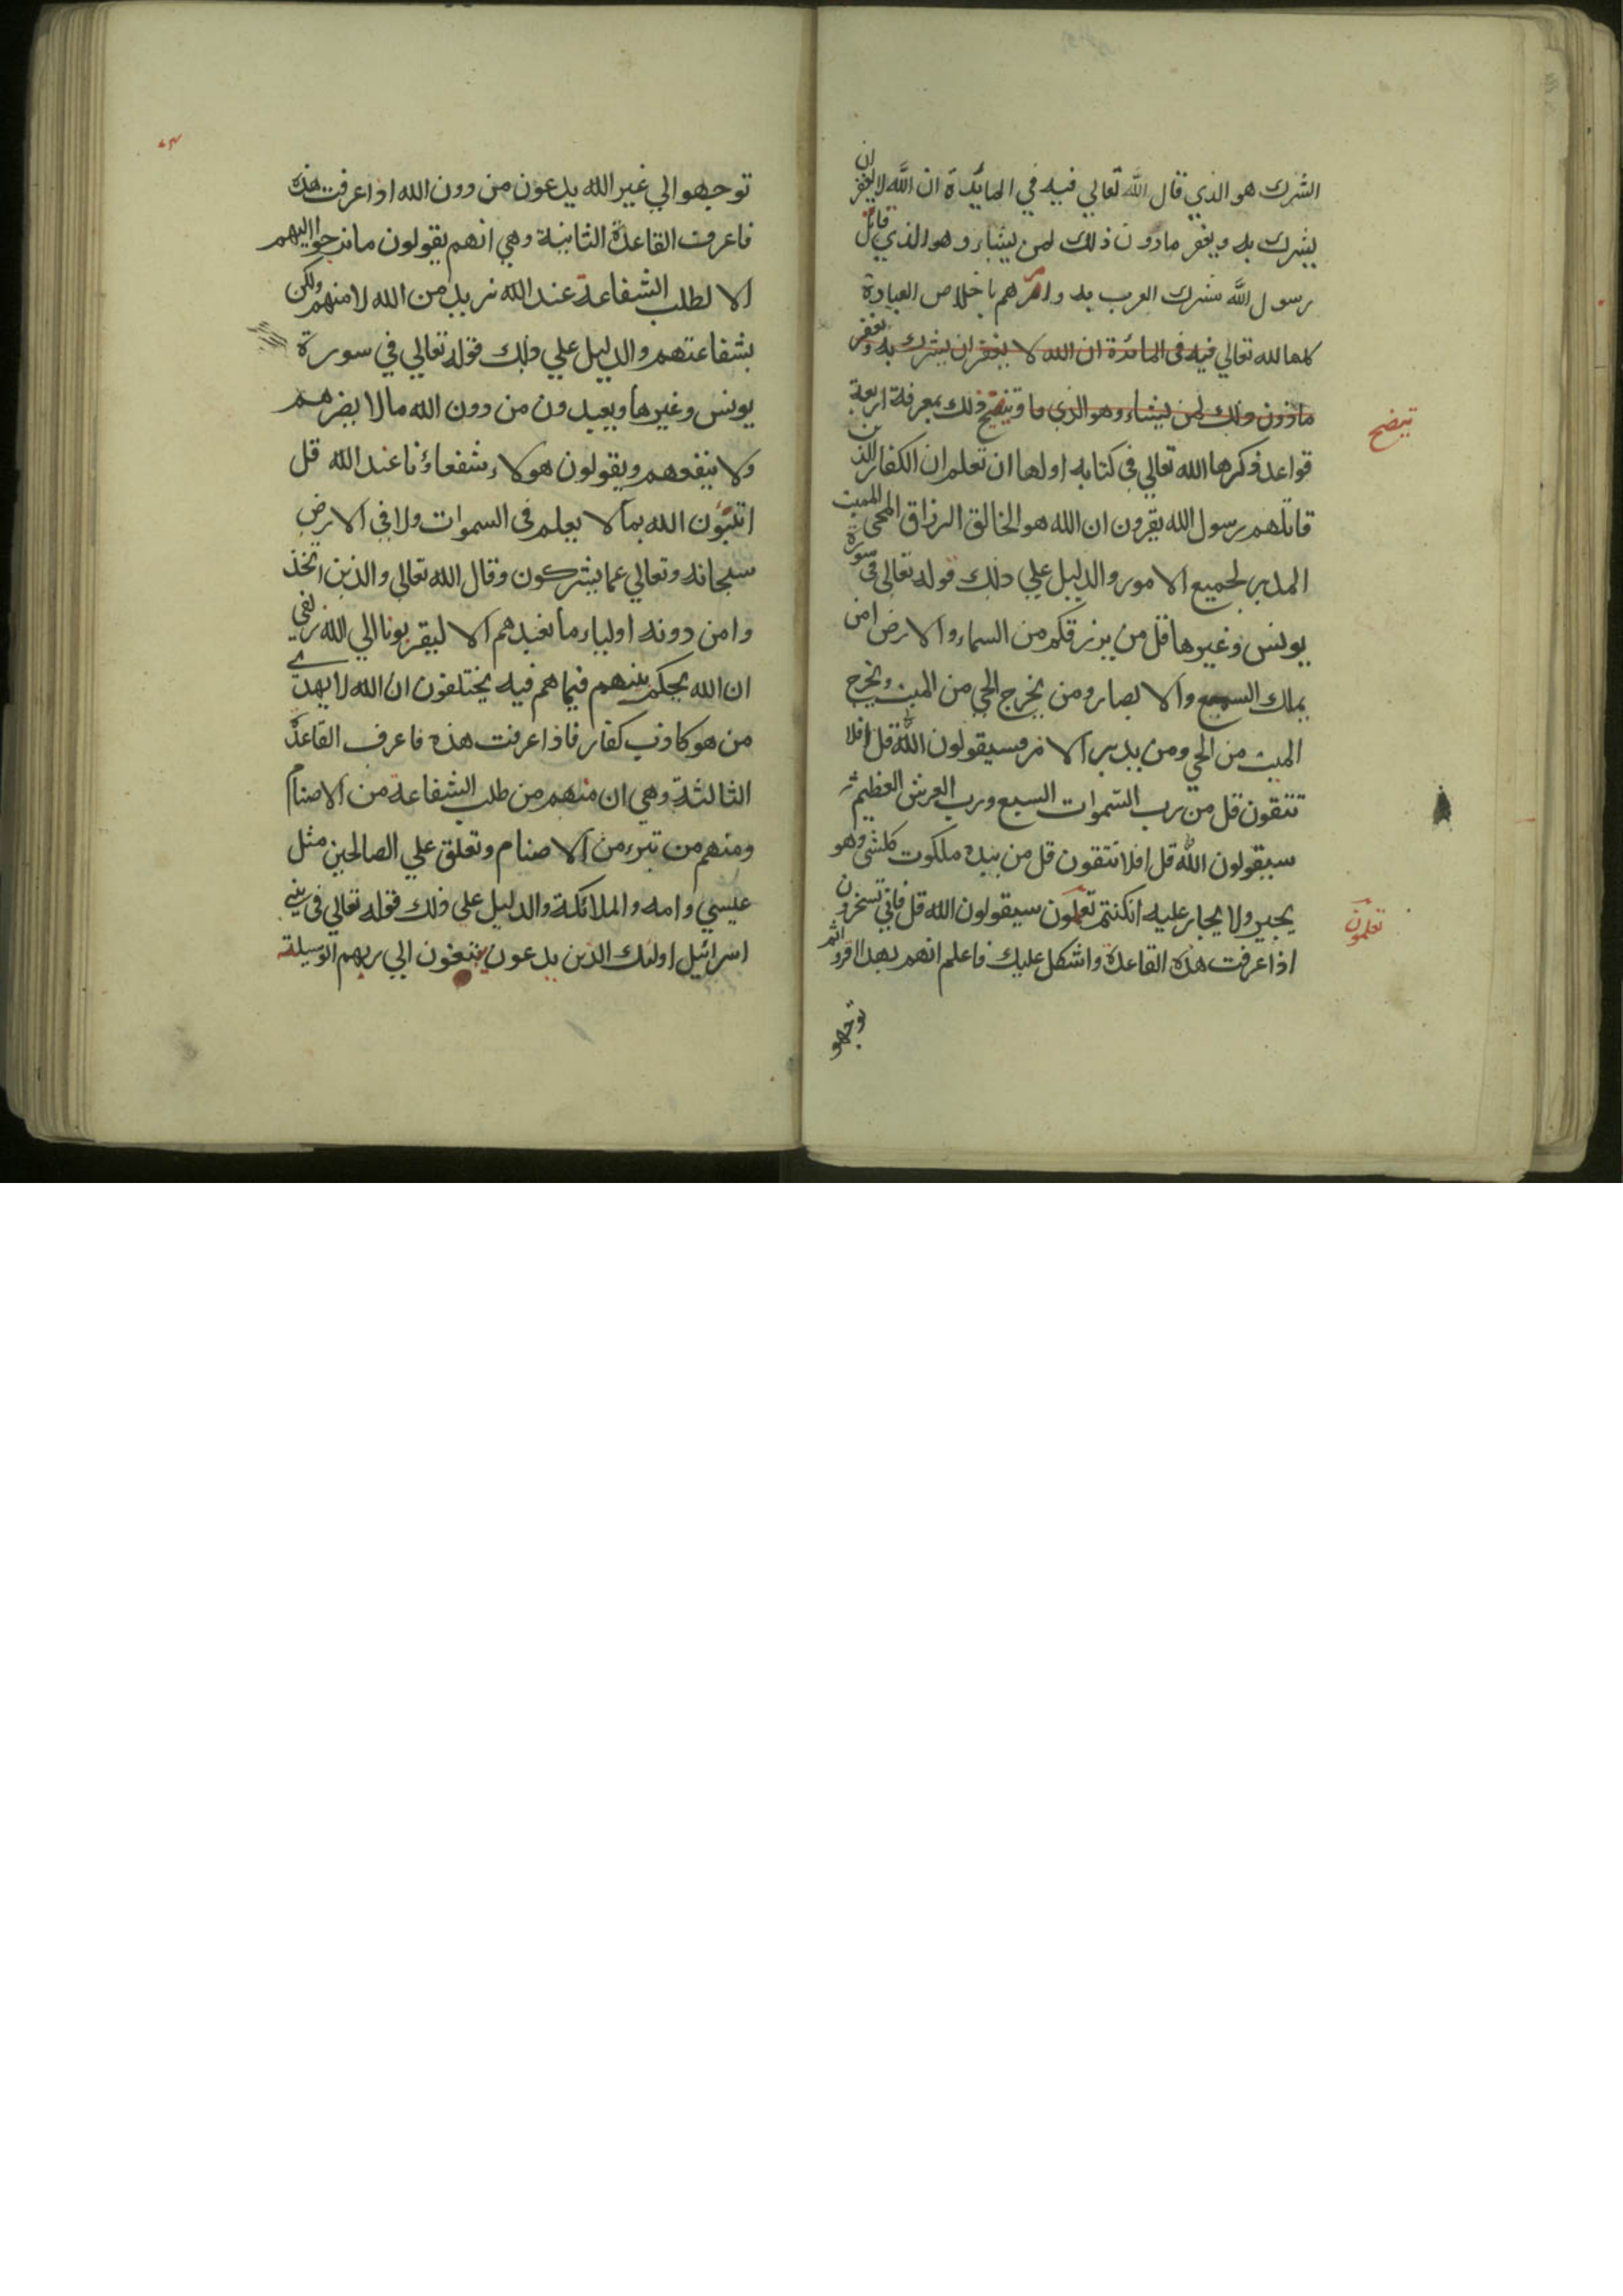 الشرك هو الذي قال الله تعالي فيه في المائدة ان الله لا يغفر ان
يشرك به ويغفر ما دون ذلك لمن يشاء وهو الذي قاتل
رسول الله مشرك العرب به وامرهم باخلاص العبادة
كلها لله تعالي فيه في المائدة ان الله لا يغفر ان يشرك به ويغفر
مادون ذلك لمن يشاء وهو الذي ما ويتضح ذلك بمعرفة اربعة
يتضح
قواعد ذكرها الله تعالي في كتابه اولها ان تعلم ان الكفار الذين
قاتلهم رسول الله يقرون ان الله هو الخالق الرزاق المحي المميت
المدبر لجميع الامور والدليل علي ذلك قوله تعالي في سورة
يونس وغيرها قل من يرزقكم من السماء والارض امن
يملك السميع والابصار ومن يخرج الحي من الميت ويخرج
الميت من الحي ومن يدبر الامر فسيقولون الله قل افلا
تتقون قل من رب السموات السبع ورب العرش العظيم
سيقولون الله قل افلا تتقون قل من بيده ملكوت كلشي وهو
يجير ولا يجار عليه انكنتم تعلمون سيقولون الله قل فاني تسحرون
تعلمون
اذا عرفت هذه القاعدة واشكل عليك فاعلم انهم بهذا اقروا ثم
توجهو
توجهو الي غير الله يدعون من دون الله اذا عرفت هذه
فاعرف القاعدة الثانية وهي انهم يقولون ما نرجوا اليهم
الا لطلب الشفاعة عند الله نريد من الله لا منهم ولكن
بشفاعتهم والدليل علي ذلك قوله تعالي في سورة
يونس وغيرها ويعبدون من دون الله ما لا يضرهم
ولا ينفعهم ويقولون هولاء شفعاؤنا عند الله قل
اتنبؤن الله بما لا يعلم في السموات ولا في الارض
سبحانه وتعالي عما يشركون وقال الله تعالي والذين اتخذ
وا من دونه اولياء ما نعبدهم الا ليقربونا الي الله زلفي
ان الله يحكم بينهم فيما هم فيه يختلفون ان الله لا يهدي
من هو كاذب كفار فاذا عرفت هذه فاعرف القاعدة
الثالثة وهي ان منهم من طلب الشفاعة من الاصنام
ومنهم من تبرء من الاصنام وتعلق علي الصالحين مثل
عيسي وامه والملائكة والدليل علي ذلك قوله تعالي في بني
اسرائيل اولئك الذين يدعون يبتغون الي ربهم الوسيلة